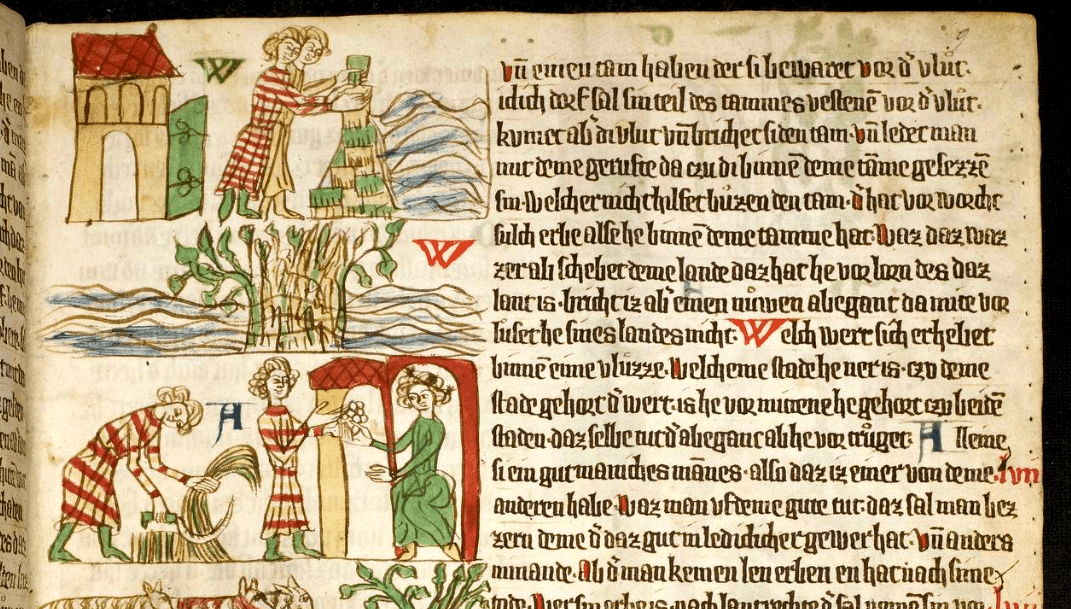 vn̄ einen tam haben der si bewaret vor d' vlut.
idich dorf sal sin teil des tammes vestenē vor d' vlut.
kvmet ab' di vlut vn̄ brichet si den tam. vn̄ ledet man
mit deme gerufte da czu di binnē deme tāme gesezzē
sin. Welcher nicht hilfet bůzen den tam. d' hat vorworcht
sulch erbe alse he binnē deme tamme hat. Waz daz waz
zer ab schebet deme lande daz hat he vorlorn des daz
lant is. bricht iz ab' einen nůwen abegant da mite vor
luset he sines landes nicht. Welch wert sich erhebet
binnē eime vluzze. Welcheme stade he ner is. czv deme
stade gehort d' wert. is he vormittene he gehort czv beidē
staden. daz selbe tut d' abegant ab he vortrůget. Alleme
si ein gut manches mānes. also daz iz einer von deme
anderen habe. Waz man vf deme gute tut. daz sal man bez
zern deme d' daz gut in lediclicher gewer hat. Vn̄ anders
nimande. Ab d' man keinen lenerben en hat nach sime
W
W
A